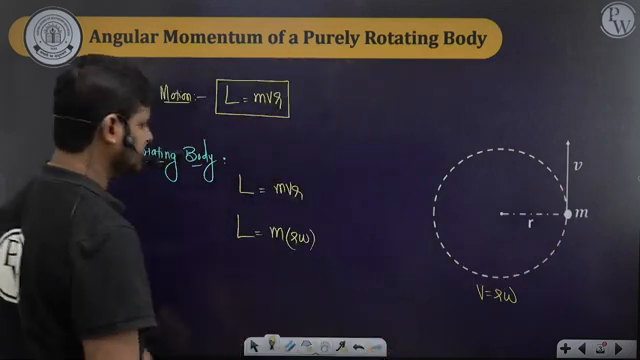 Angular Momentum of a Purely Rotating Body
PW
Motion :- L = mvr
Body :
L = mvr
L = m(rω)
v
m
r
V = rω